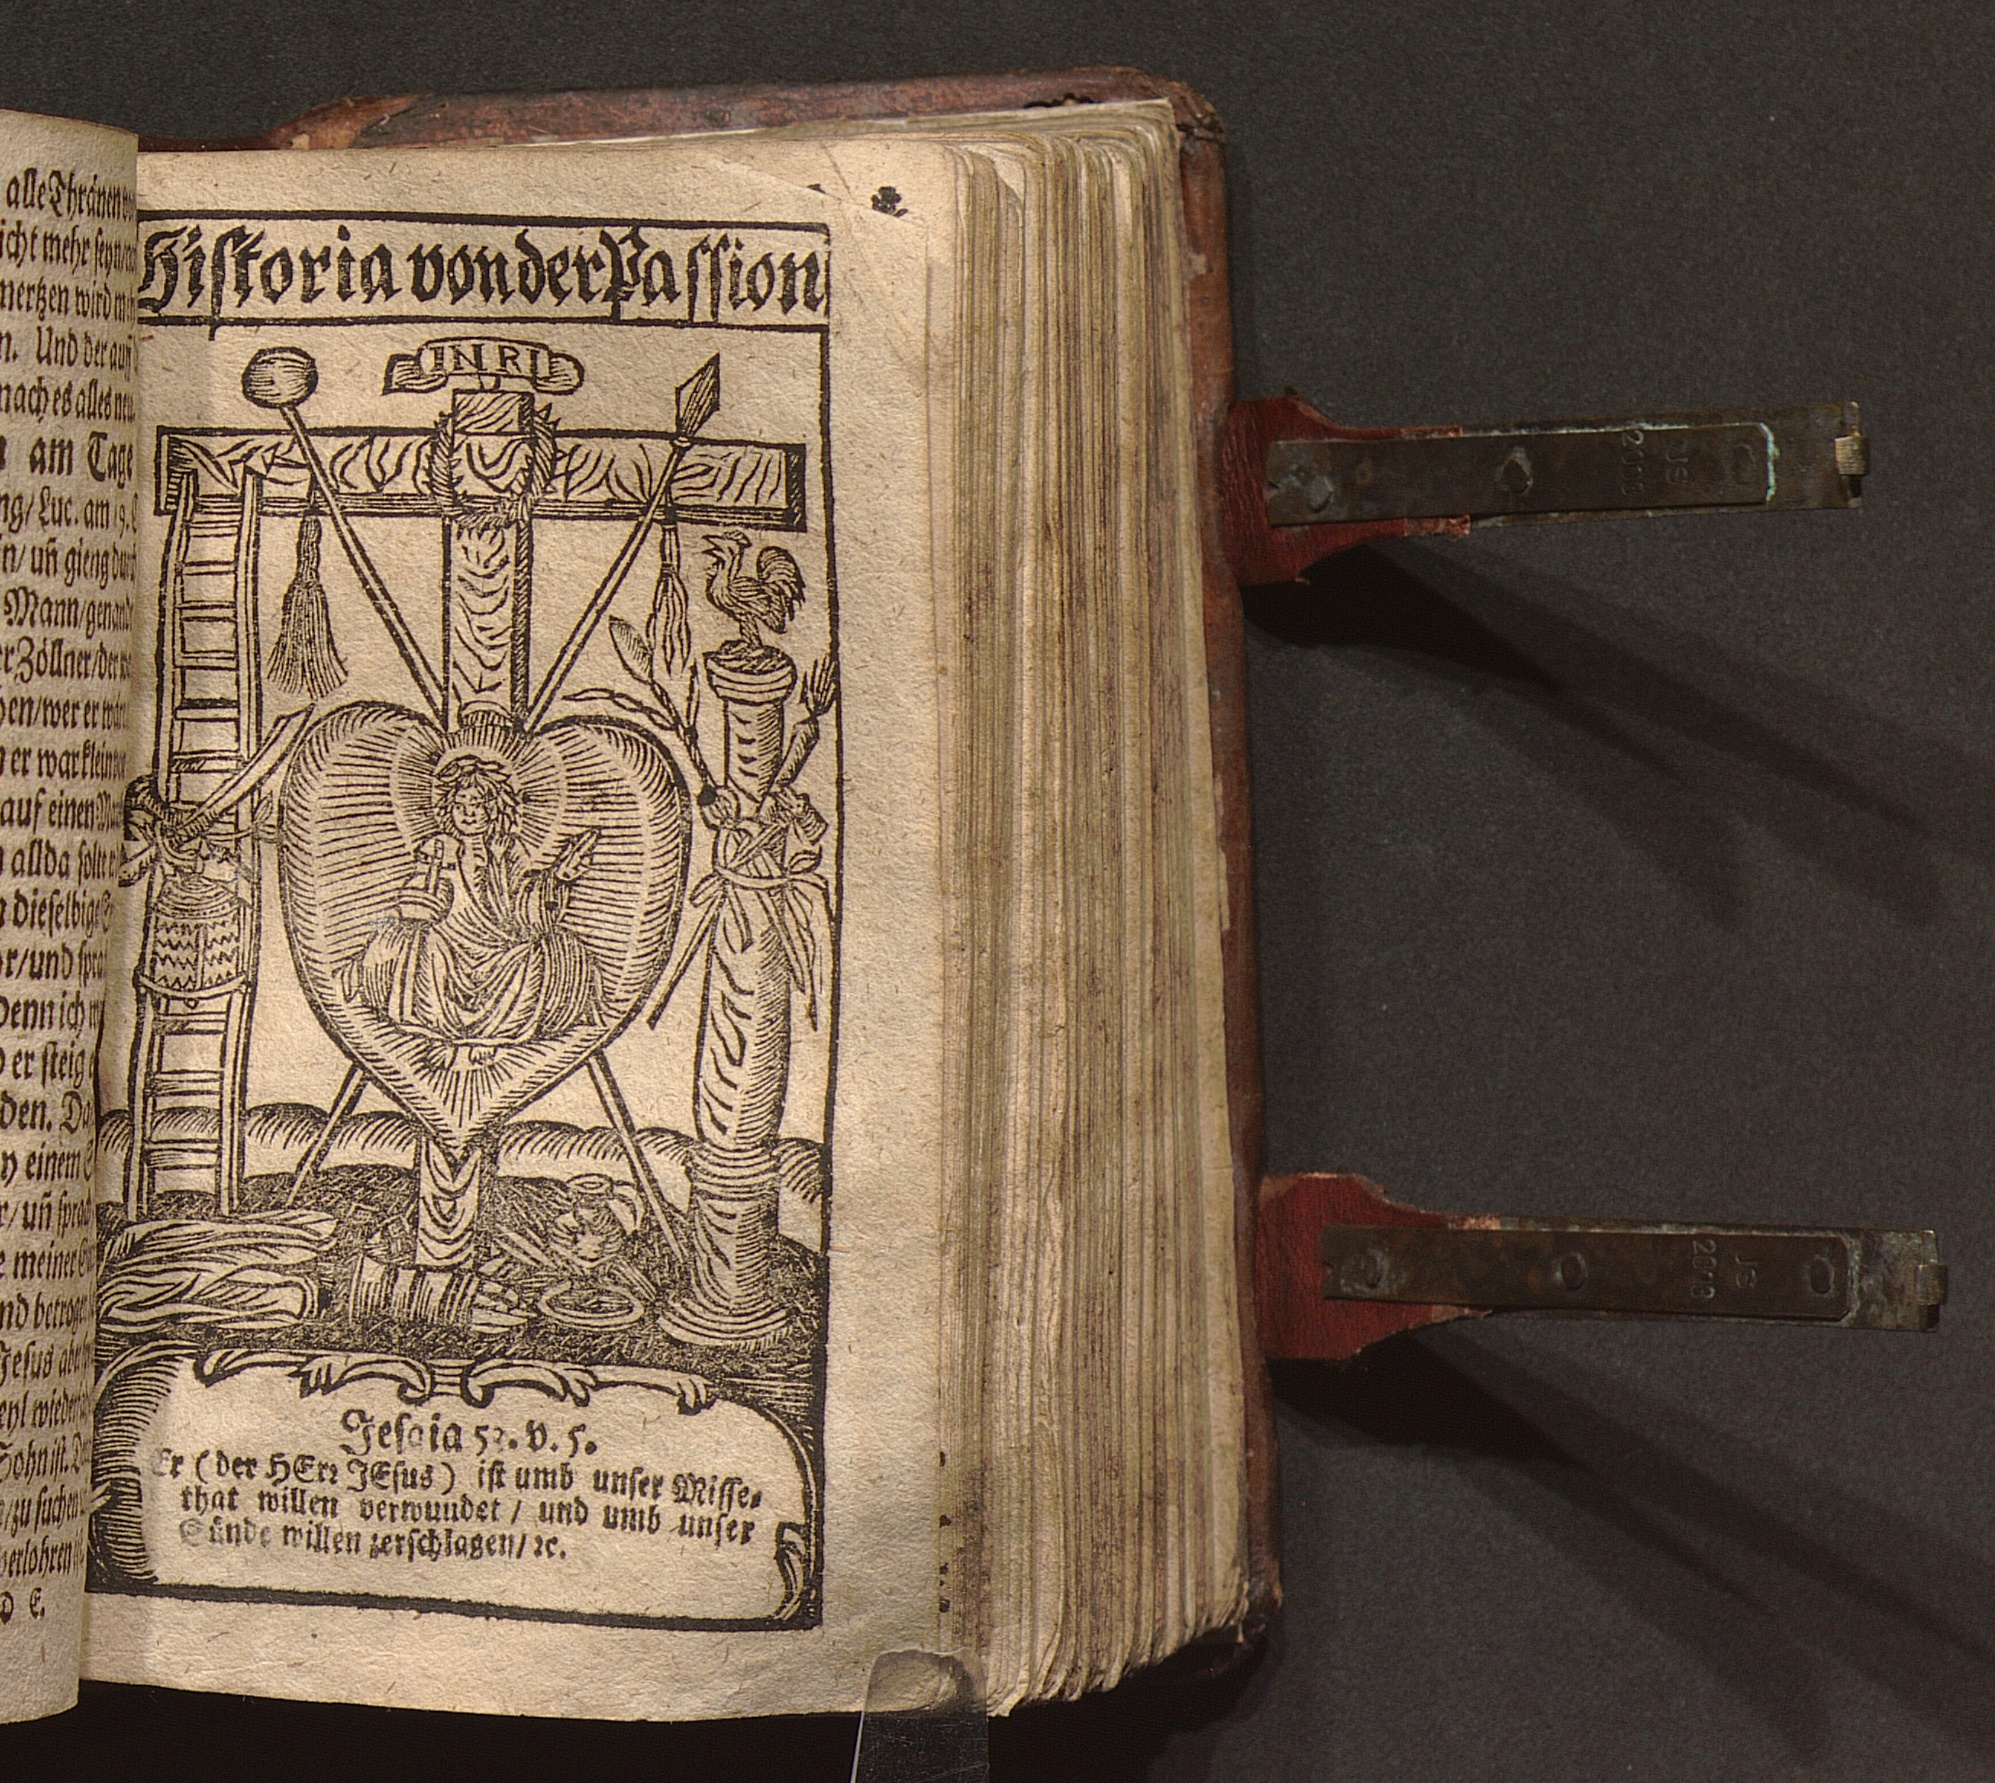 alle Thränen
icht mehr seyn/
mertzen wird
n. Und der auff
mach es alles neu
am Tage
ng/ Luc. am 19. C
in/ uñ gieng durch
Mann/ genandt
er Zöllner/ der
hen/ wer er
er war klein
auf einen
allda solte
dieselbige
r/ und
Denn ich
er steig
den. Da
einem
r/ uñ sprach
meiner
nd betrog
Jesus aber
eyl wieder
Sohn ist.
/zu suchen
verlohren
D E.
Historia von der Passion
INRI
Jesaia 53. v. 5.
Er (der HErr JEsus) ist umb unser Misse-
that willen verwundet / und umb unser
Sünde willen zerschlagen/ ꝛc.
JS
2013
JS
2013